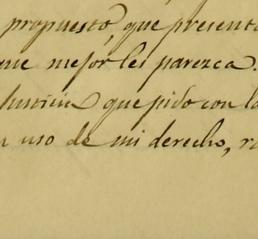 propuesto, que present
que mejor les paresca.
Justicia que pido con l
uso de mi derecho, r